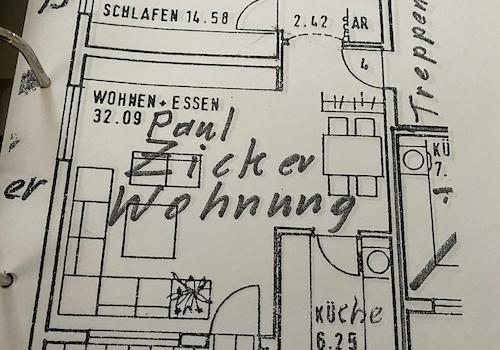 SCHLAFEN 14.58
2.42 AR
WOHNEN+ESSEN
32.09
Paul
Zicker
Wohnung
Treppen
KÜ
7.
er
KÜche
6.25